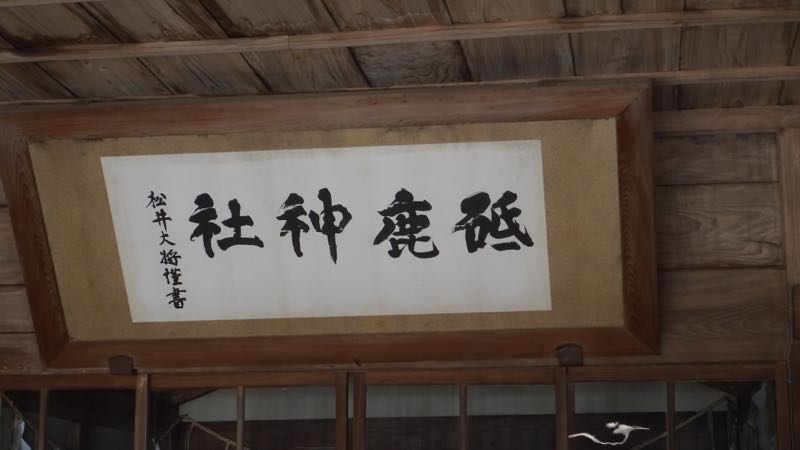 砥鹿神社
松井大将謹書